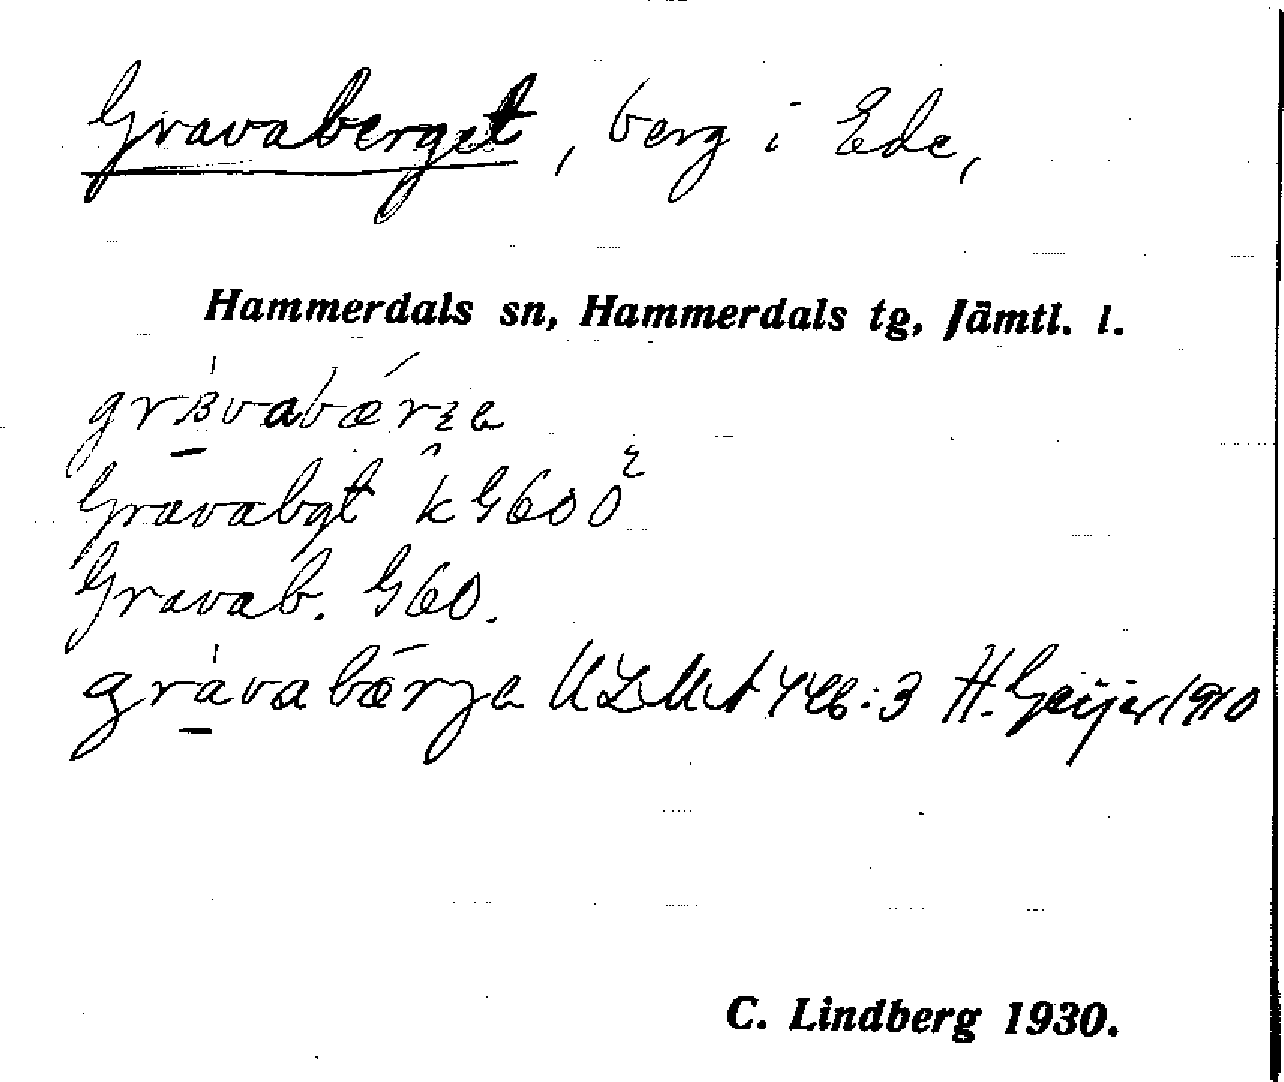 Gravaberget, berg i Ede,
Hammerdals sn, Hammerdals tg, Jämtl. l.
Gravabgt k G600
Gravab. G60.
gràvabǽrja ULMA 446:3 H. Geijer 1910
C. Lindberg 1930.